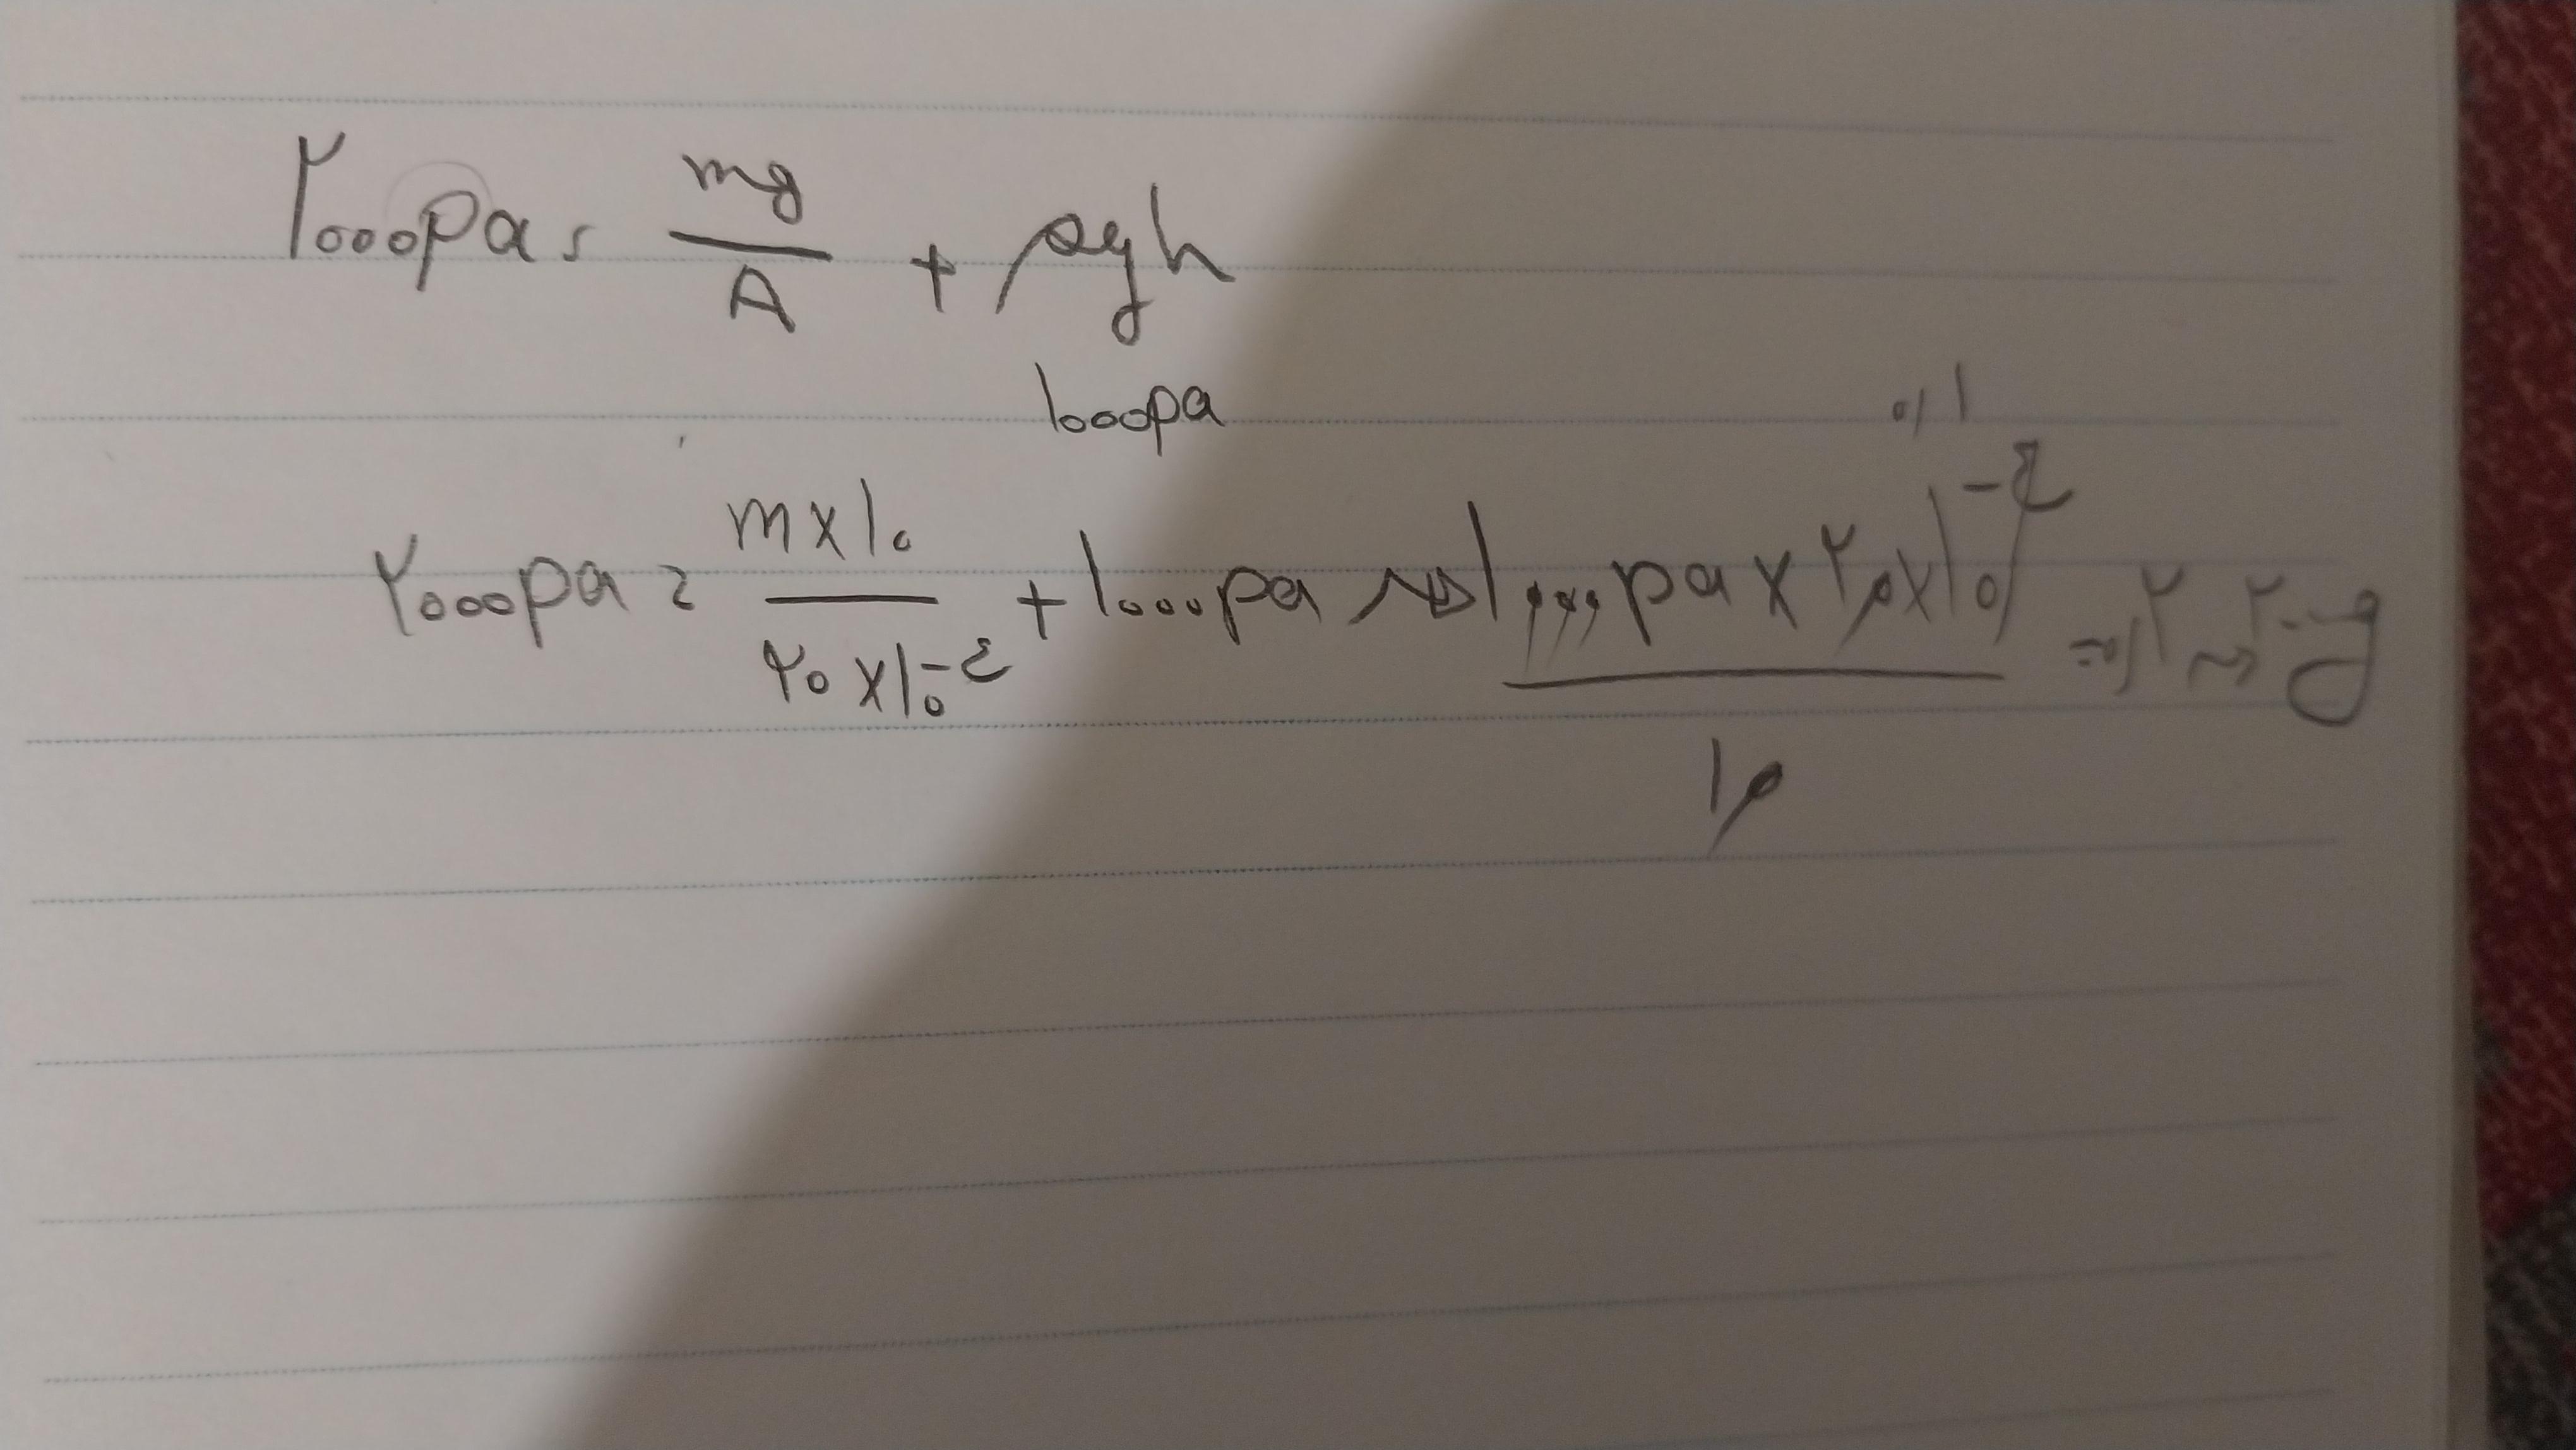 ۲۰۰۰pa = mg/A + ρgh
۱۰۰۰pa
۲۰۰۰pa = m×۱۰ / ۲۰×۱۰^-۴ + ۱۰۰۰pa → ۱۰۰۰pa × ۲۰×۱۰^-۴ / ۱۰